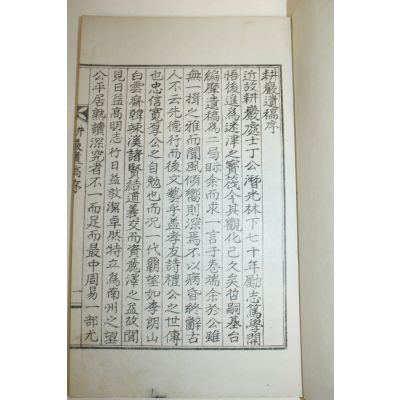 耕巖遺稿序
近故耕巖處士丁公潛光林下七十年勵志篤學開
悟後進爲迷津之寶筏今其觀化已久矣哲嗣基台
編摩遺稿爲二局眎余而求一言于卷端余於公雖
無一揖之雅而聞風傾嚮則深焉不以病昏終辭古
人不云先德行而後文藝乎盖孝友詩禮公之世傳
也忠信寬厚公之自勉也而況一代覇望如李朗山
白雲齋韓溪諸賢結道義交而資麗澤之益故聞
見日益高明志行日益敦潔卓然特立爲南州之望
公平居熟讀深究者不一而足而最中周易一部尤
耕巖遺稿序
一